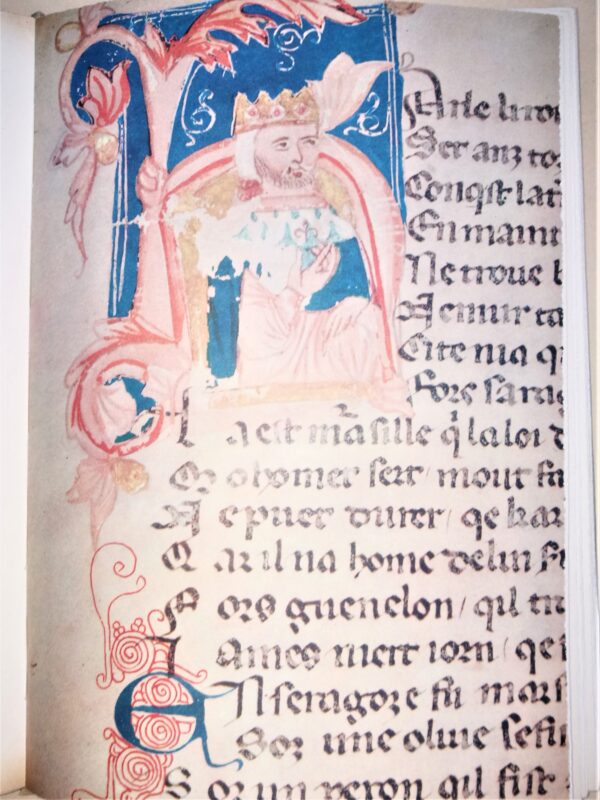 Arle li roi
Set anz to
Conqst la
En maint
Ne trove b
A
Cite nia q
Fors sarag
La est m sille q la loi d
M ahomet sert / mout fa
N e puet durer / qe kar
C ar il na home de lin
F ors guenelon / qil tr
I ames niert iorn / qe
EN seragoçe fu mars
Sor une olive se
S or un peron qil fist